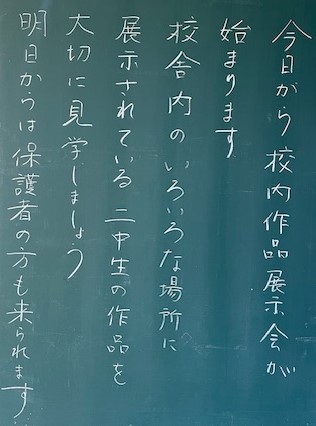 今日から校内作品展示会が
始まります
校舎内のいろいろな場所に
展示されている二中生の作品を
大切に見学しましょう
明日からは保護者の方も来られます